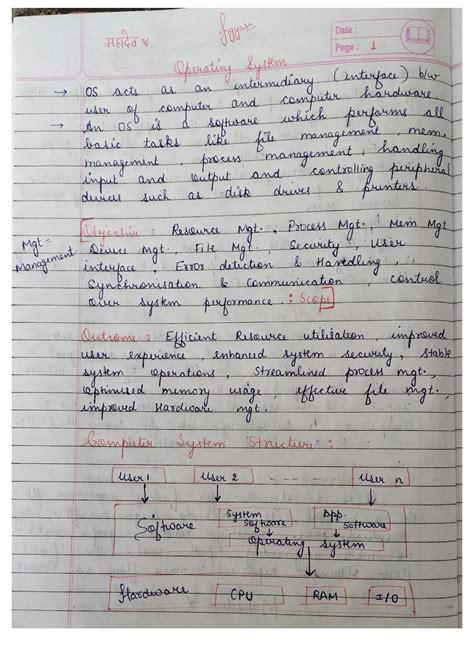 महादेव
Jigyasa
Date :
Page : 1
Operating System
→ OS acts as an intermediary (interface) b/w
user of computer and computer hardware.
→ An OS is a software which performs all
basic tasks like file management, mem.
management, process management, handling
input and output and controlling peripheral
devices such as disk drives & printers.
Mgt =
Management
Objective : Resource Mgt., Process Mgt., Mem Mgt
Device Mgt., File Mgt., Security, User
interface, Error detection & Handling,
Synchronisation & Communication, control
over system performance. : Scope
Outcome : Efficient Resource utilisation, improved
user experience, enhanced system security, stable
system operations, streamlined process mgt.,
optimised memory usage, effective file mgt.,
improved Hardware mgt.
Computer System Structure :
User 1 User 2 - - - - User n
Software System Software App. Software
Operating System
Hardware CPU RAM I/O